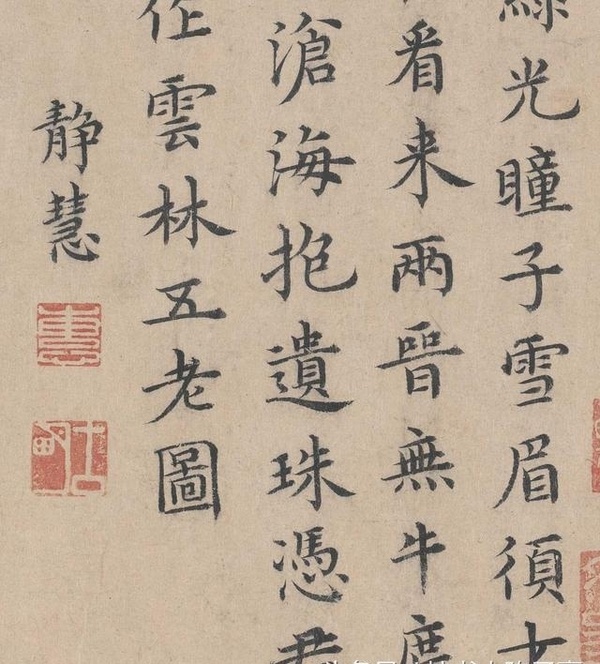 綠光瞳子雪眉須
看来兩晉無牛
滄海抱遺珠憑
作雲林五老圖
静慧